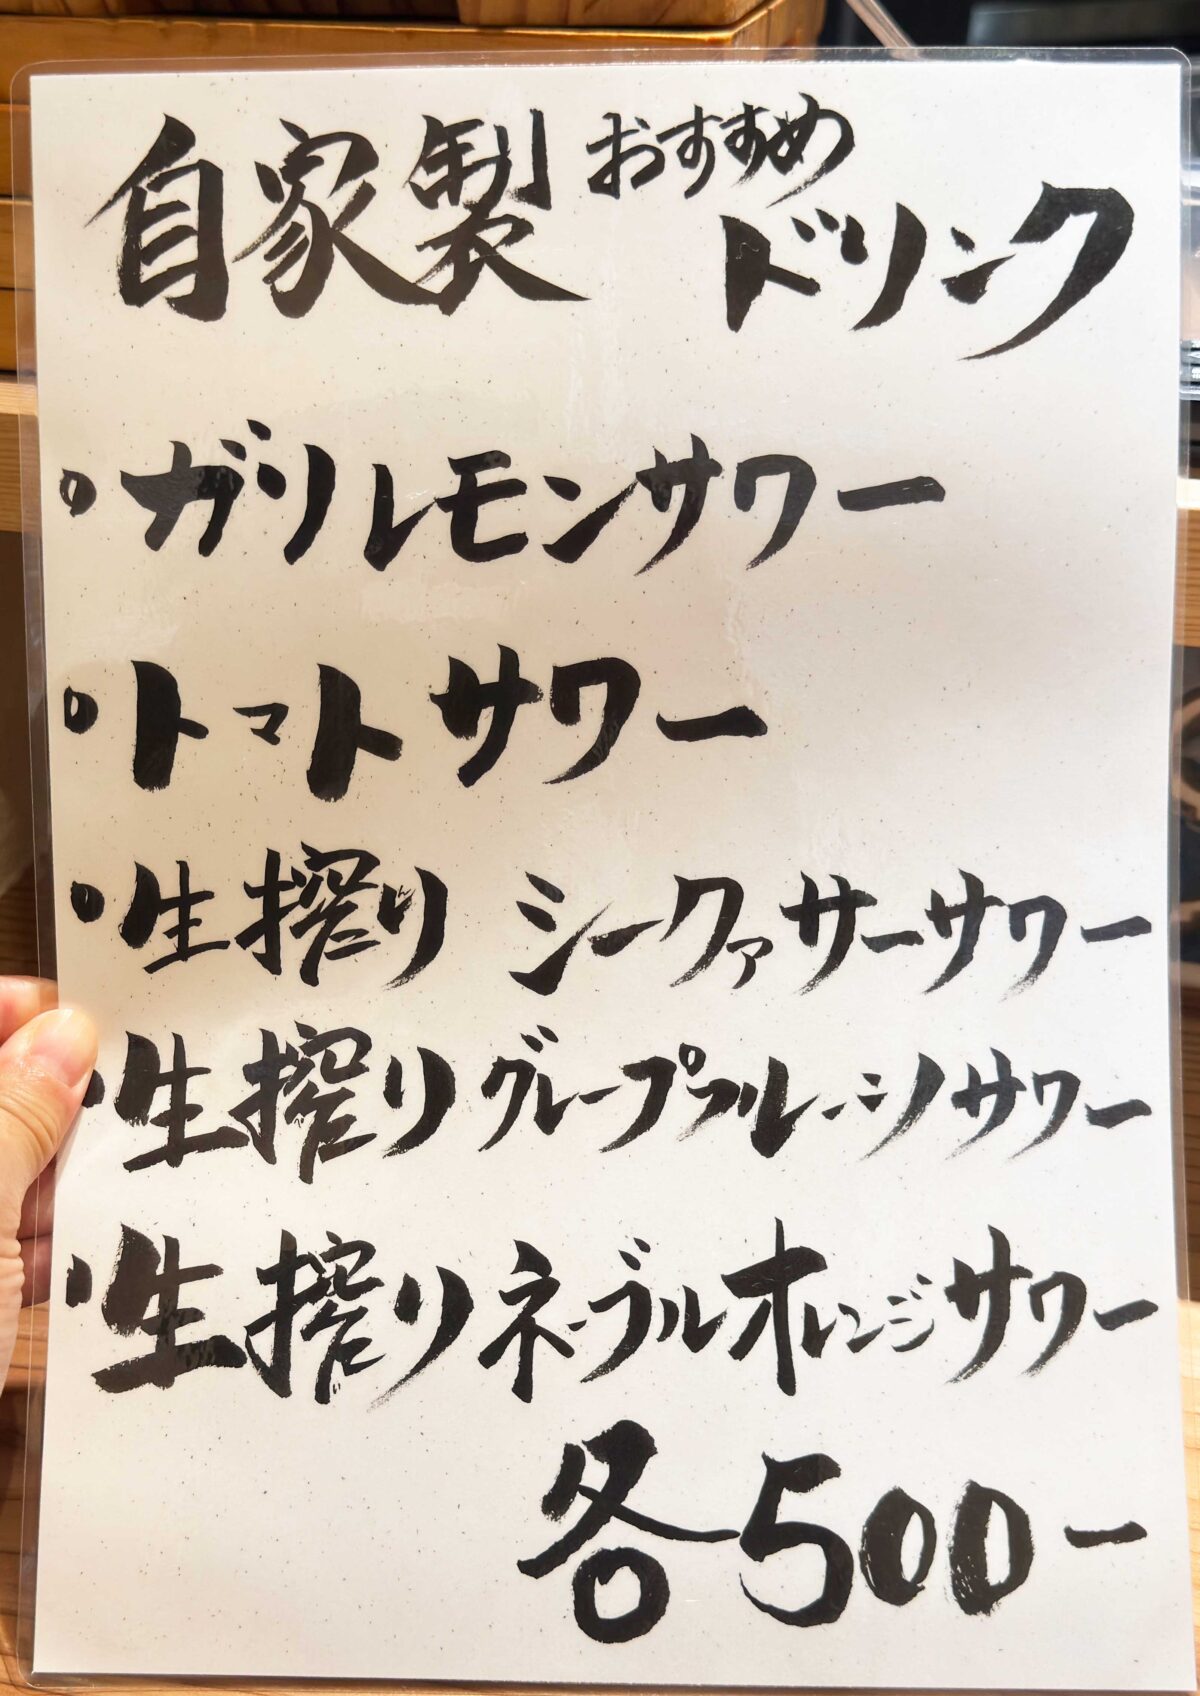 自家製 おすすめ ドリンク
・ガリレモンサワー
・トマトサワー
・生搾り シークァサーサワー
・生搾りグレープフルーツサワー
・生搾りネーブルオレンジサワー
各500-